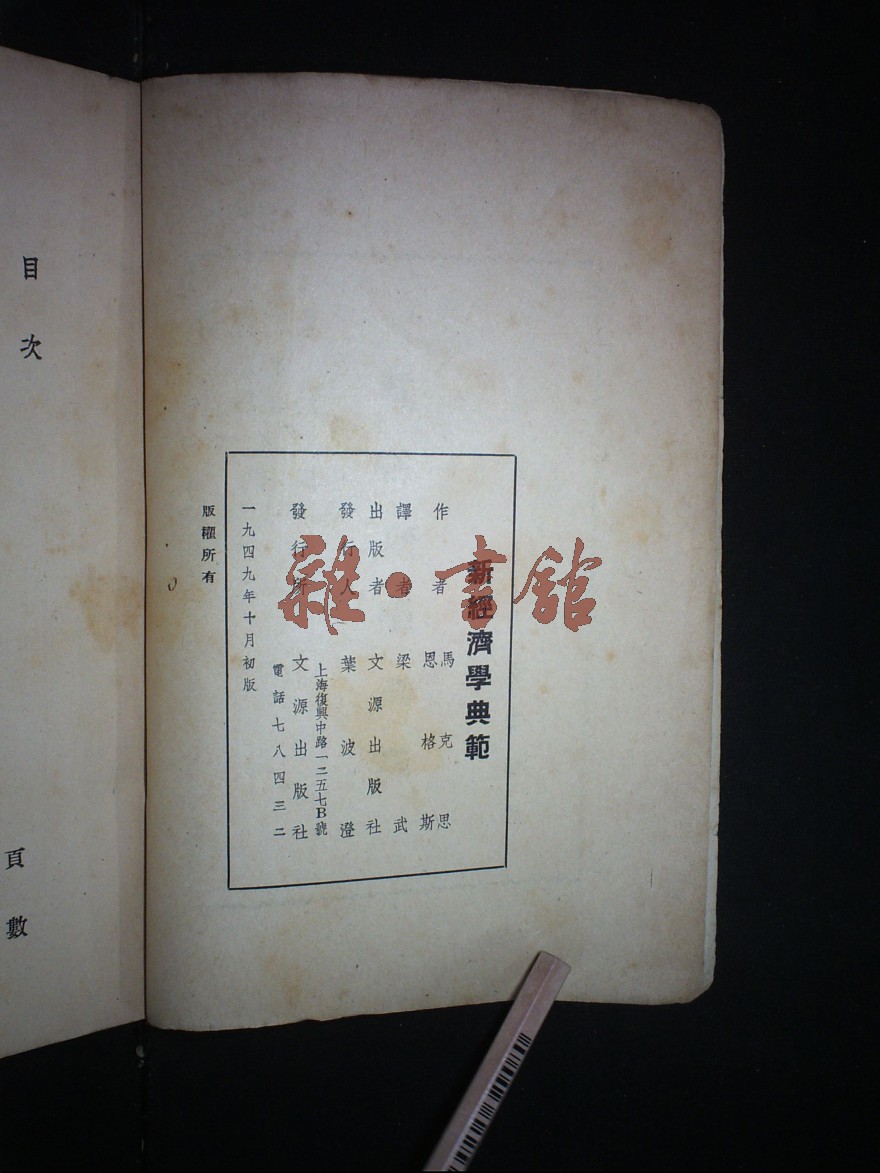 新經濟學典範
作者 馬克思
恩格斯
譯者 梁武
出版者 文源出版社
發行人 葉波澄
上海復興中路一二五七B號
發行所 文源出版社
電話七八四三二
一九四九年十月初版
版權所有
目次
頁數
雜·書館